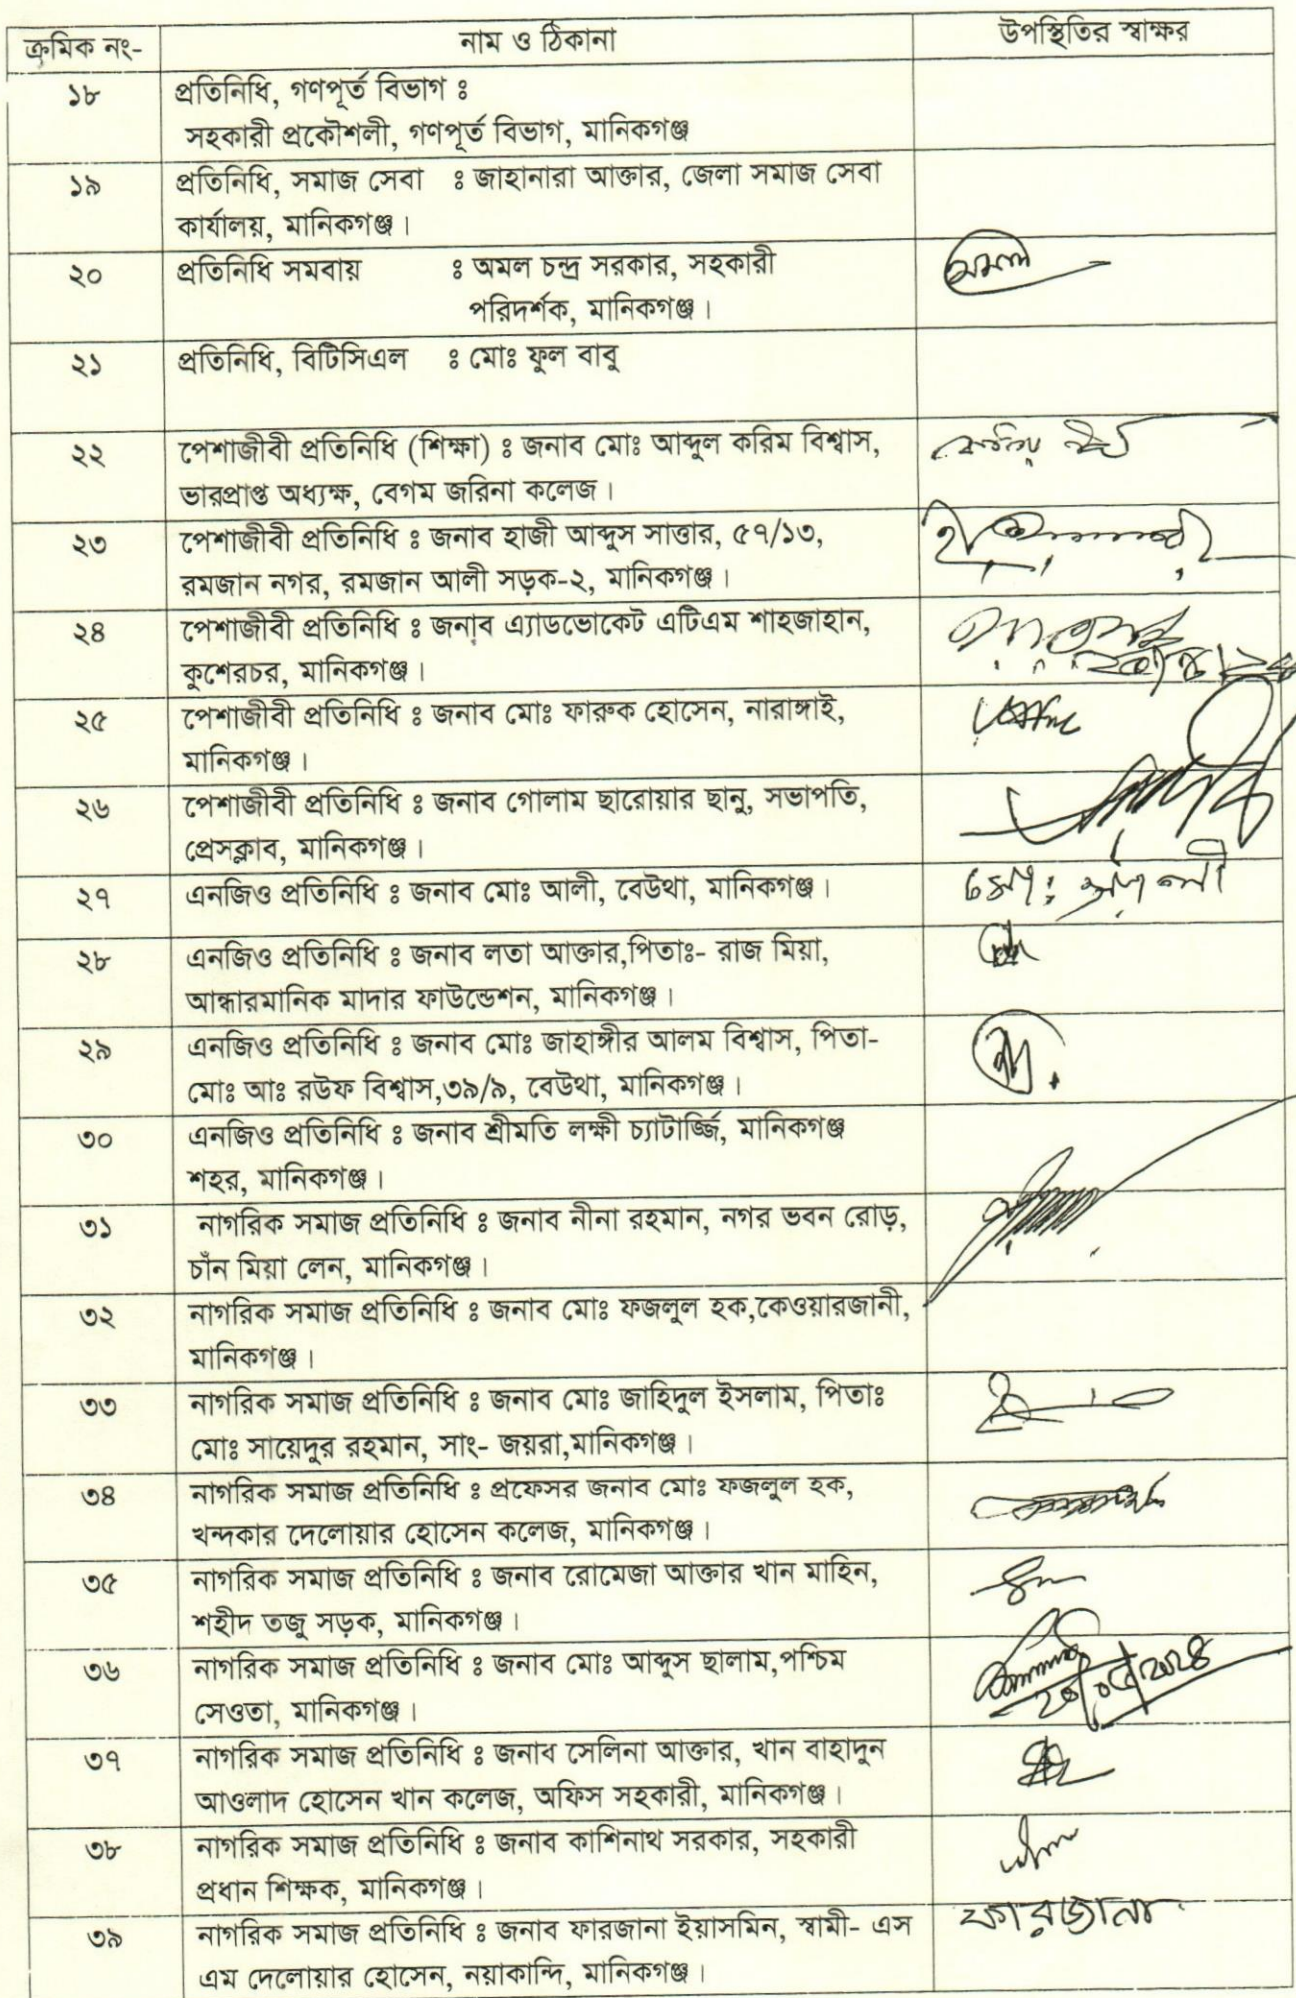 ক্রমিক নং- নাম ও ঠিকানা উপস্থিতির স্বাক্ষর
১৮ প্রতিনিধি, গণপূর্ত বিভাগ ঃ
সহকারী প্রকৌশলী, গণপূর্ত বিভাগ, মানিকগঞ্জ
১৯ প্রতিনিধি, সমাজ সেবা ঃ জাহানারা আক্তার, জেলা সমাজ সেবা
কার্যালয়, মানিকগঞ্জ।
২০ প্রতিনিধি সমবায় ঃ অমল চন্দ্র সরকার, সহকারী অমল
পরিদর্শক, মানিকগঞ্জ।
২১ প্রতিনিধি, বিটিসিএল ঃ মোঃ ফুল বাবু
২২ পেশাজীবী প্রতিনিধি (শিক্ষা) ঃ জনাব মোঃ আব্দুল করিম বিশ্বাস,
ভারপ্রাপ্ত অধ্যক্ষ, বেগম জরিনা কলেজ।
২৩ পেশাজীবী প্রতিনিধি ঃ জনাব হাজী আব্দুস সাত্তার, ৫৭/১৩,
রমজান নগর, রমজান আলী সড়ক-২, মানিকগঞ্জ।
২৪ পেশাজীবী প্রতিনিধি ঃ জনাব এ্যাডভোকেট এটিএম শাহজাহান,
কুশেরচর, মানিকগঞ্জ।
২৫ পেশাজীবী প্রতিনিধি ঃ জনাব মোঃ ফারুক হোসেন, নারাঙ্গাই,
মানিকগঞ্জ।
২৬ পেশাজীবী প্রতিনিধি ঃ জনাব গোলাম ছারোয়ার ছানু, সভাপতি,
প্রেসক্লাব, মানিকগঞ্জ।
২৭ এনজিও প্রতিনিধি ঃ জনাব মোঃ আলী, বেউথা, মানিকগঞ্জ। মোঃ আলী
২৮ এনজিও প্রতিনিধি ঃ জনাব লতা আক্তার,পিতাঃ- রাজ মিয়া,
আন্ধারমানিক মাদার ফাউন্ডেশন, মানিকগঞ্জ।
২৯ এনজিও প্রতিনিধি ঃ জনাব মোঃ জাহাঙ্গীর আলম বিশ্বাস, পিতা-
মোঃ আঃ রউফ বিশ্বাস,৩৯/৯, বেউথা, মানিকগঞ্জ।
৩০ এনজিও প্রতিনিধি ঃ জনাব শ্রীমতি লক্ষী চ্যাটার্জ্জি, মানিকগঞ্জ
শহর, মানিকগঞ্জ।
৩১ নাগরিক সমাজ প্রতিনিধি ঃ জনাব নীনা রহমান, নগর ভবন রোড়,
চাঁন মিয়া লেন, মানিকগঞ্জ।
৩২ নাগরিক সমাজ প্রতিনিধি ঃ জনাব মোঃ ফজলুল হক,কেওয়ারজানী,
মানিকগঞ্জ।
৩৩ নাগরিক সমাজ প্রতিনিধি ঃ জনাব মোঃ জাহিদুল ইসলাম, পিতাঃ
মোঃ সায়েদুর রহমান, সাং- জয়রা,মানিকগঞ্জ।
৩৪ নাগরিক সমাজ প্রতিনিধি ঃ প্রফেসর জনাব মোঃ ফজলুল হক,
খন্দকার দেলোয়ার হোসেন কলেজ, মানিকগঞ্জ।
৩৫ নাগরিক সমাজ প্রতিনিধি ঃ জনাব রোমেজা আক্তার খান মাহিন,
শহীদ তজু সড়ক, মানিকগঞ্জ।
৩৬ নাগরিক সমাজ প্রতিনিধি ঃ জনাব মোঃ আব্দুস ছালাম,পশ্চিম
সেওতা, মানিকগঞ্জ।
৩৭ নাগরিক সমাজ প্রতিনিধি ঃ জনাব সেলিনা আক্তার, খান বাহাদুন
আওলাদ হোসেন খান কলেজ, অফিস সহকারী, মানিকগঞ্জ।
৩৮ নাগরিক সমাজ প্রতিনিধি ঃ জনাব কাশিনাথ সরকার, সহকারী
প্রধান শিক্ষক, মানিকগঞ্জ।
৩৯ নাগরিক সমাজ প্রতিনিধি ঃ জনাব ফারজানা ইয়াসমিন, স্বামী- এস ফারজানা
এম দেলোয়ার হোসেন, নয়াকান্দি, মানিকগঞ্জ।